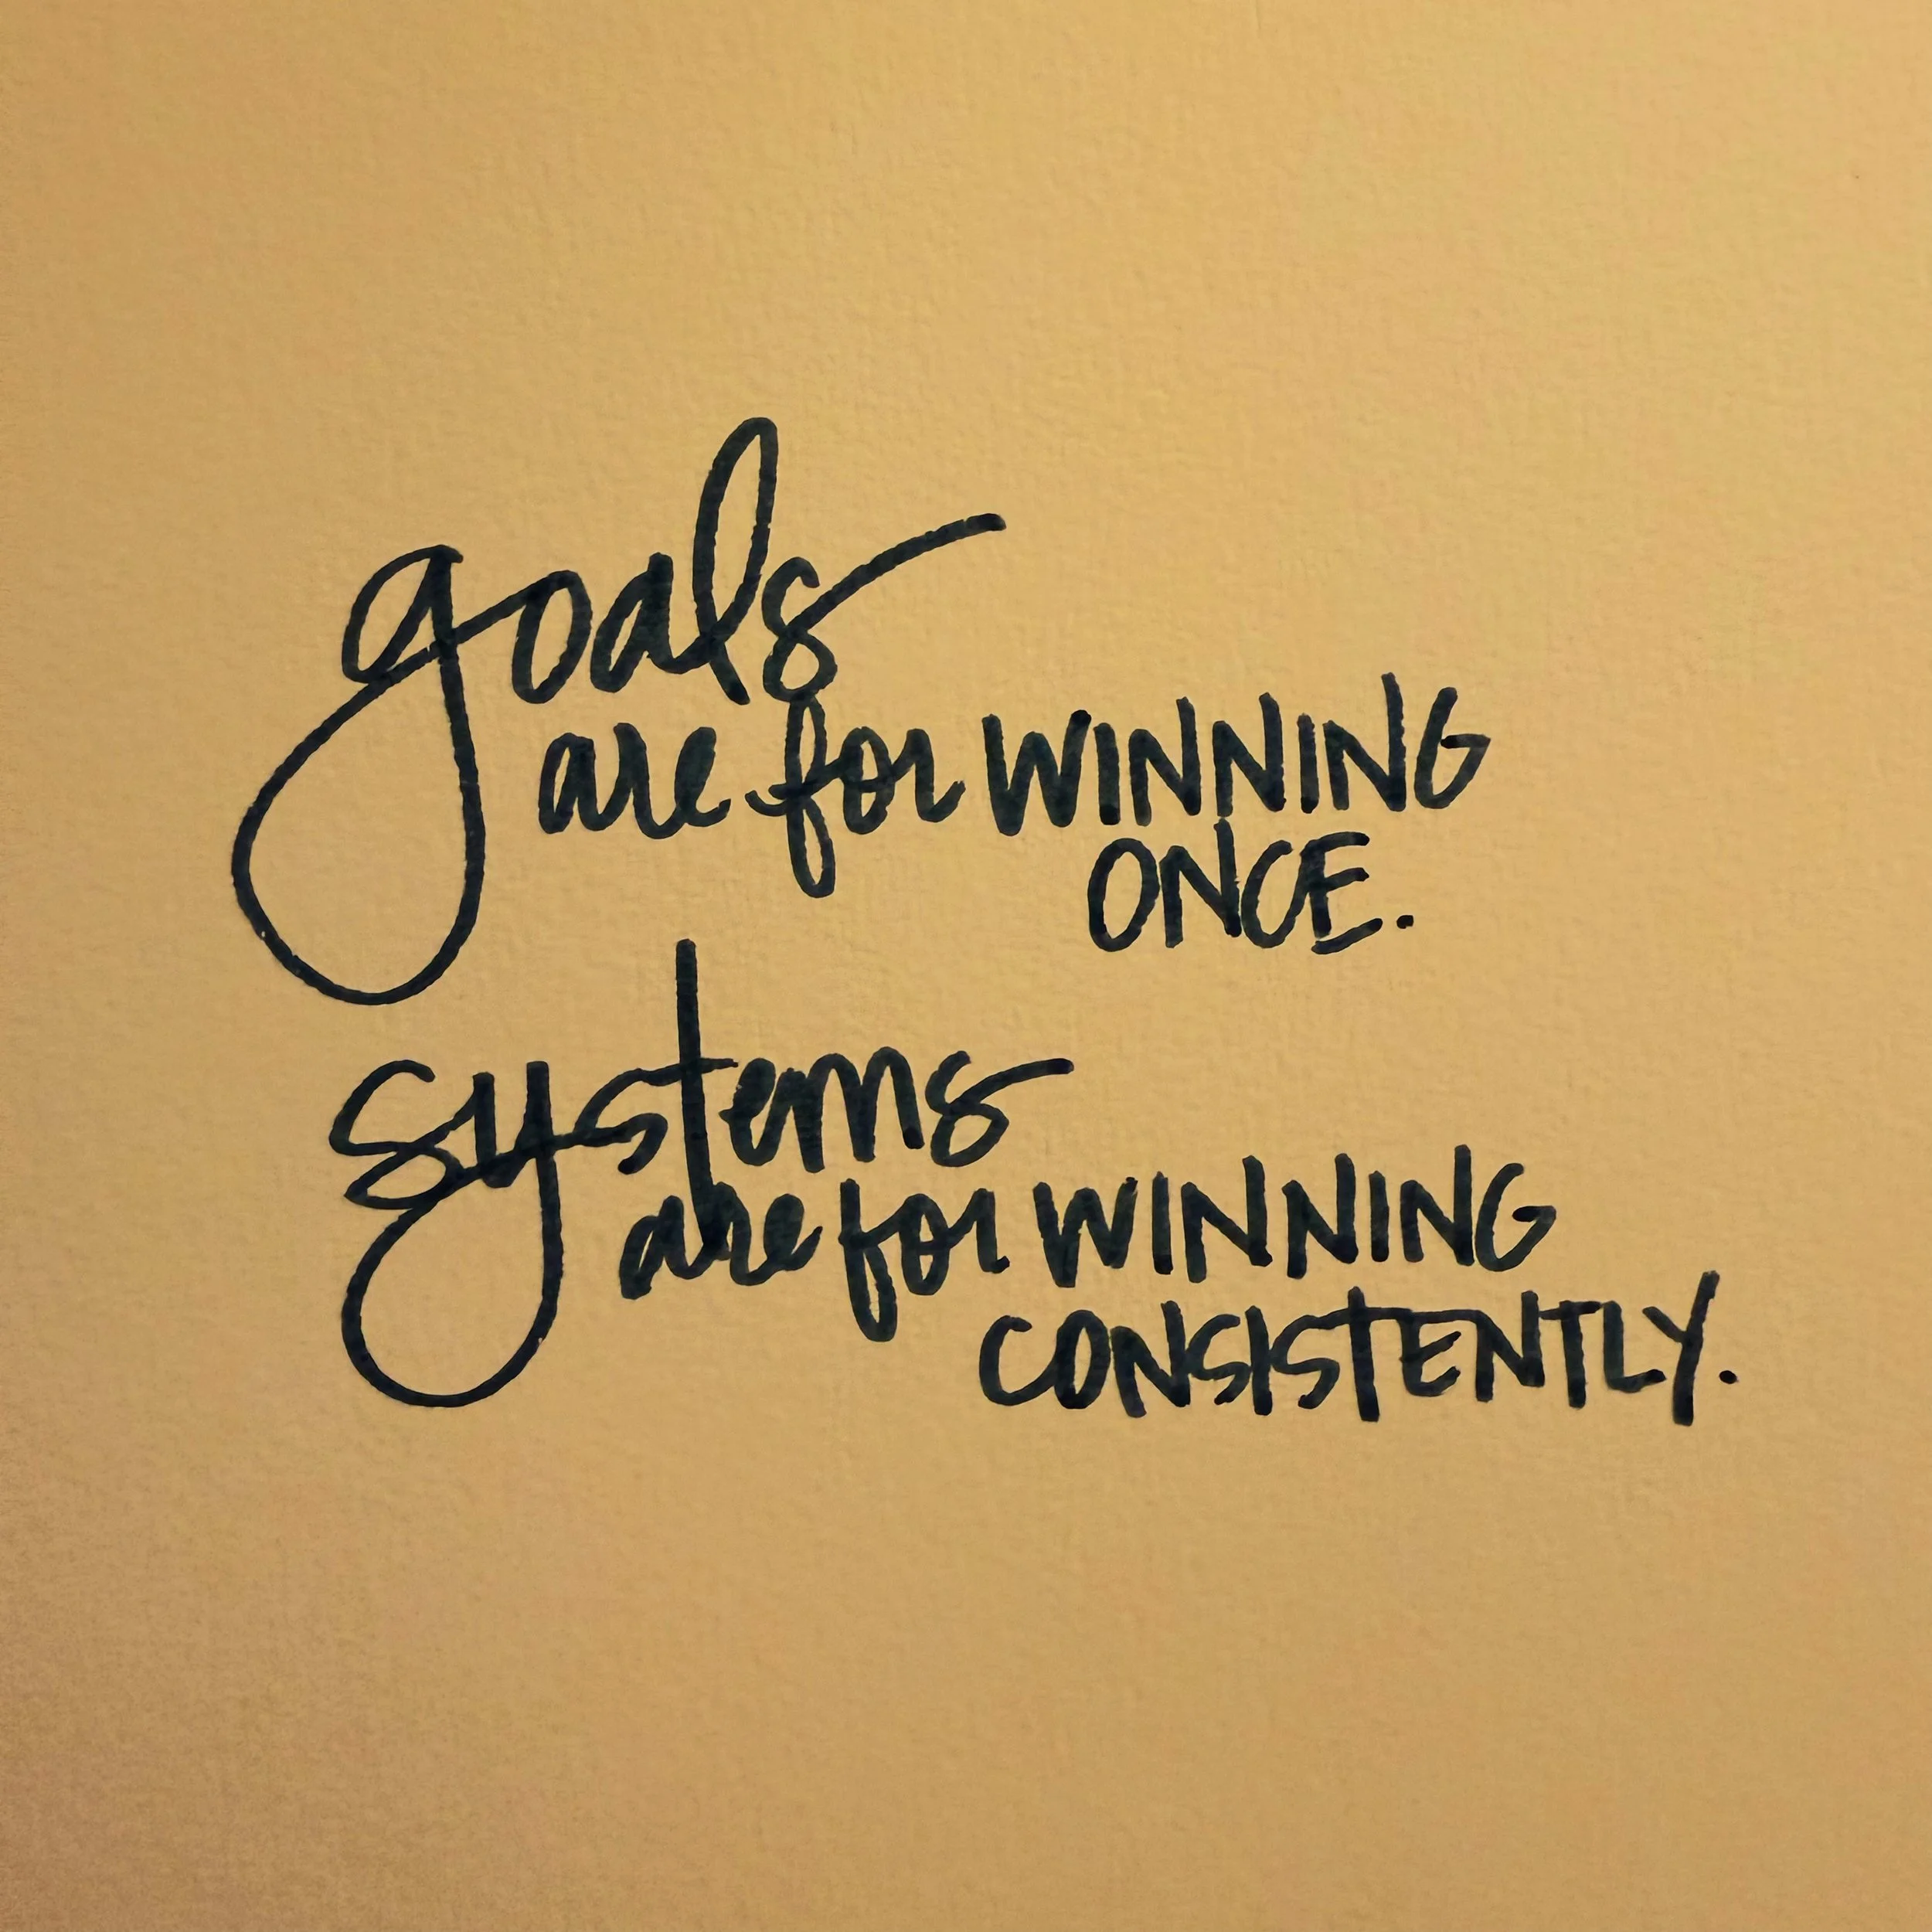 goals
are for WINNING
ONCE.
systems
are for WINNING
CONSISTENTLY.